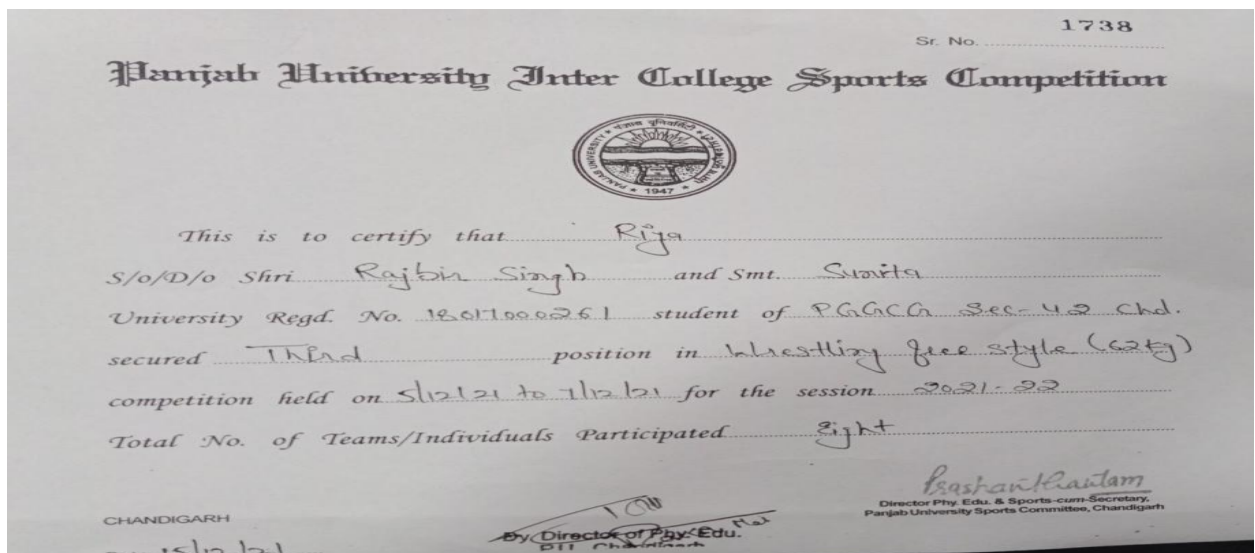 1738
Sr. No.
Panjab University Inter College Sports Competition
PANJAB UNIVERSITY
1947
This is to certify that Riya
S/o/D/o Shri Rajbir Singh and Smt. Sunita
University Regd. No. 18017000261 student of PGGCG Sec-42 Chd.
secured Third position in Wrestling free style (62kg)
competition held on 5/12/21 to 7/12/21 for the session 2021-22
Total No. of Teams/Individuals Participated Eight
CHANDIGARH
15/12/21
Dy. Director of Phy. Edu.
Chandigarh
Director Phy. Edu. & Sports-cum-Secretary,
Panjab University Sports Committee, Chandigarh